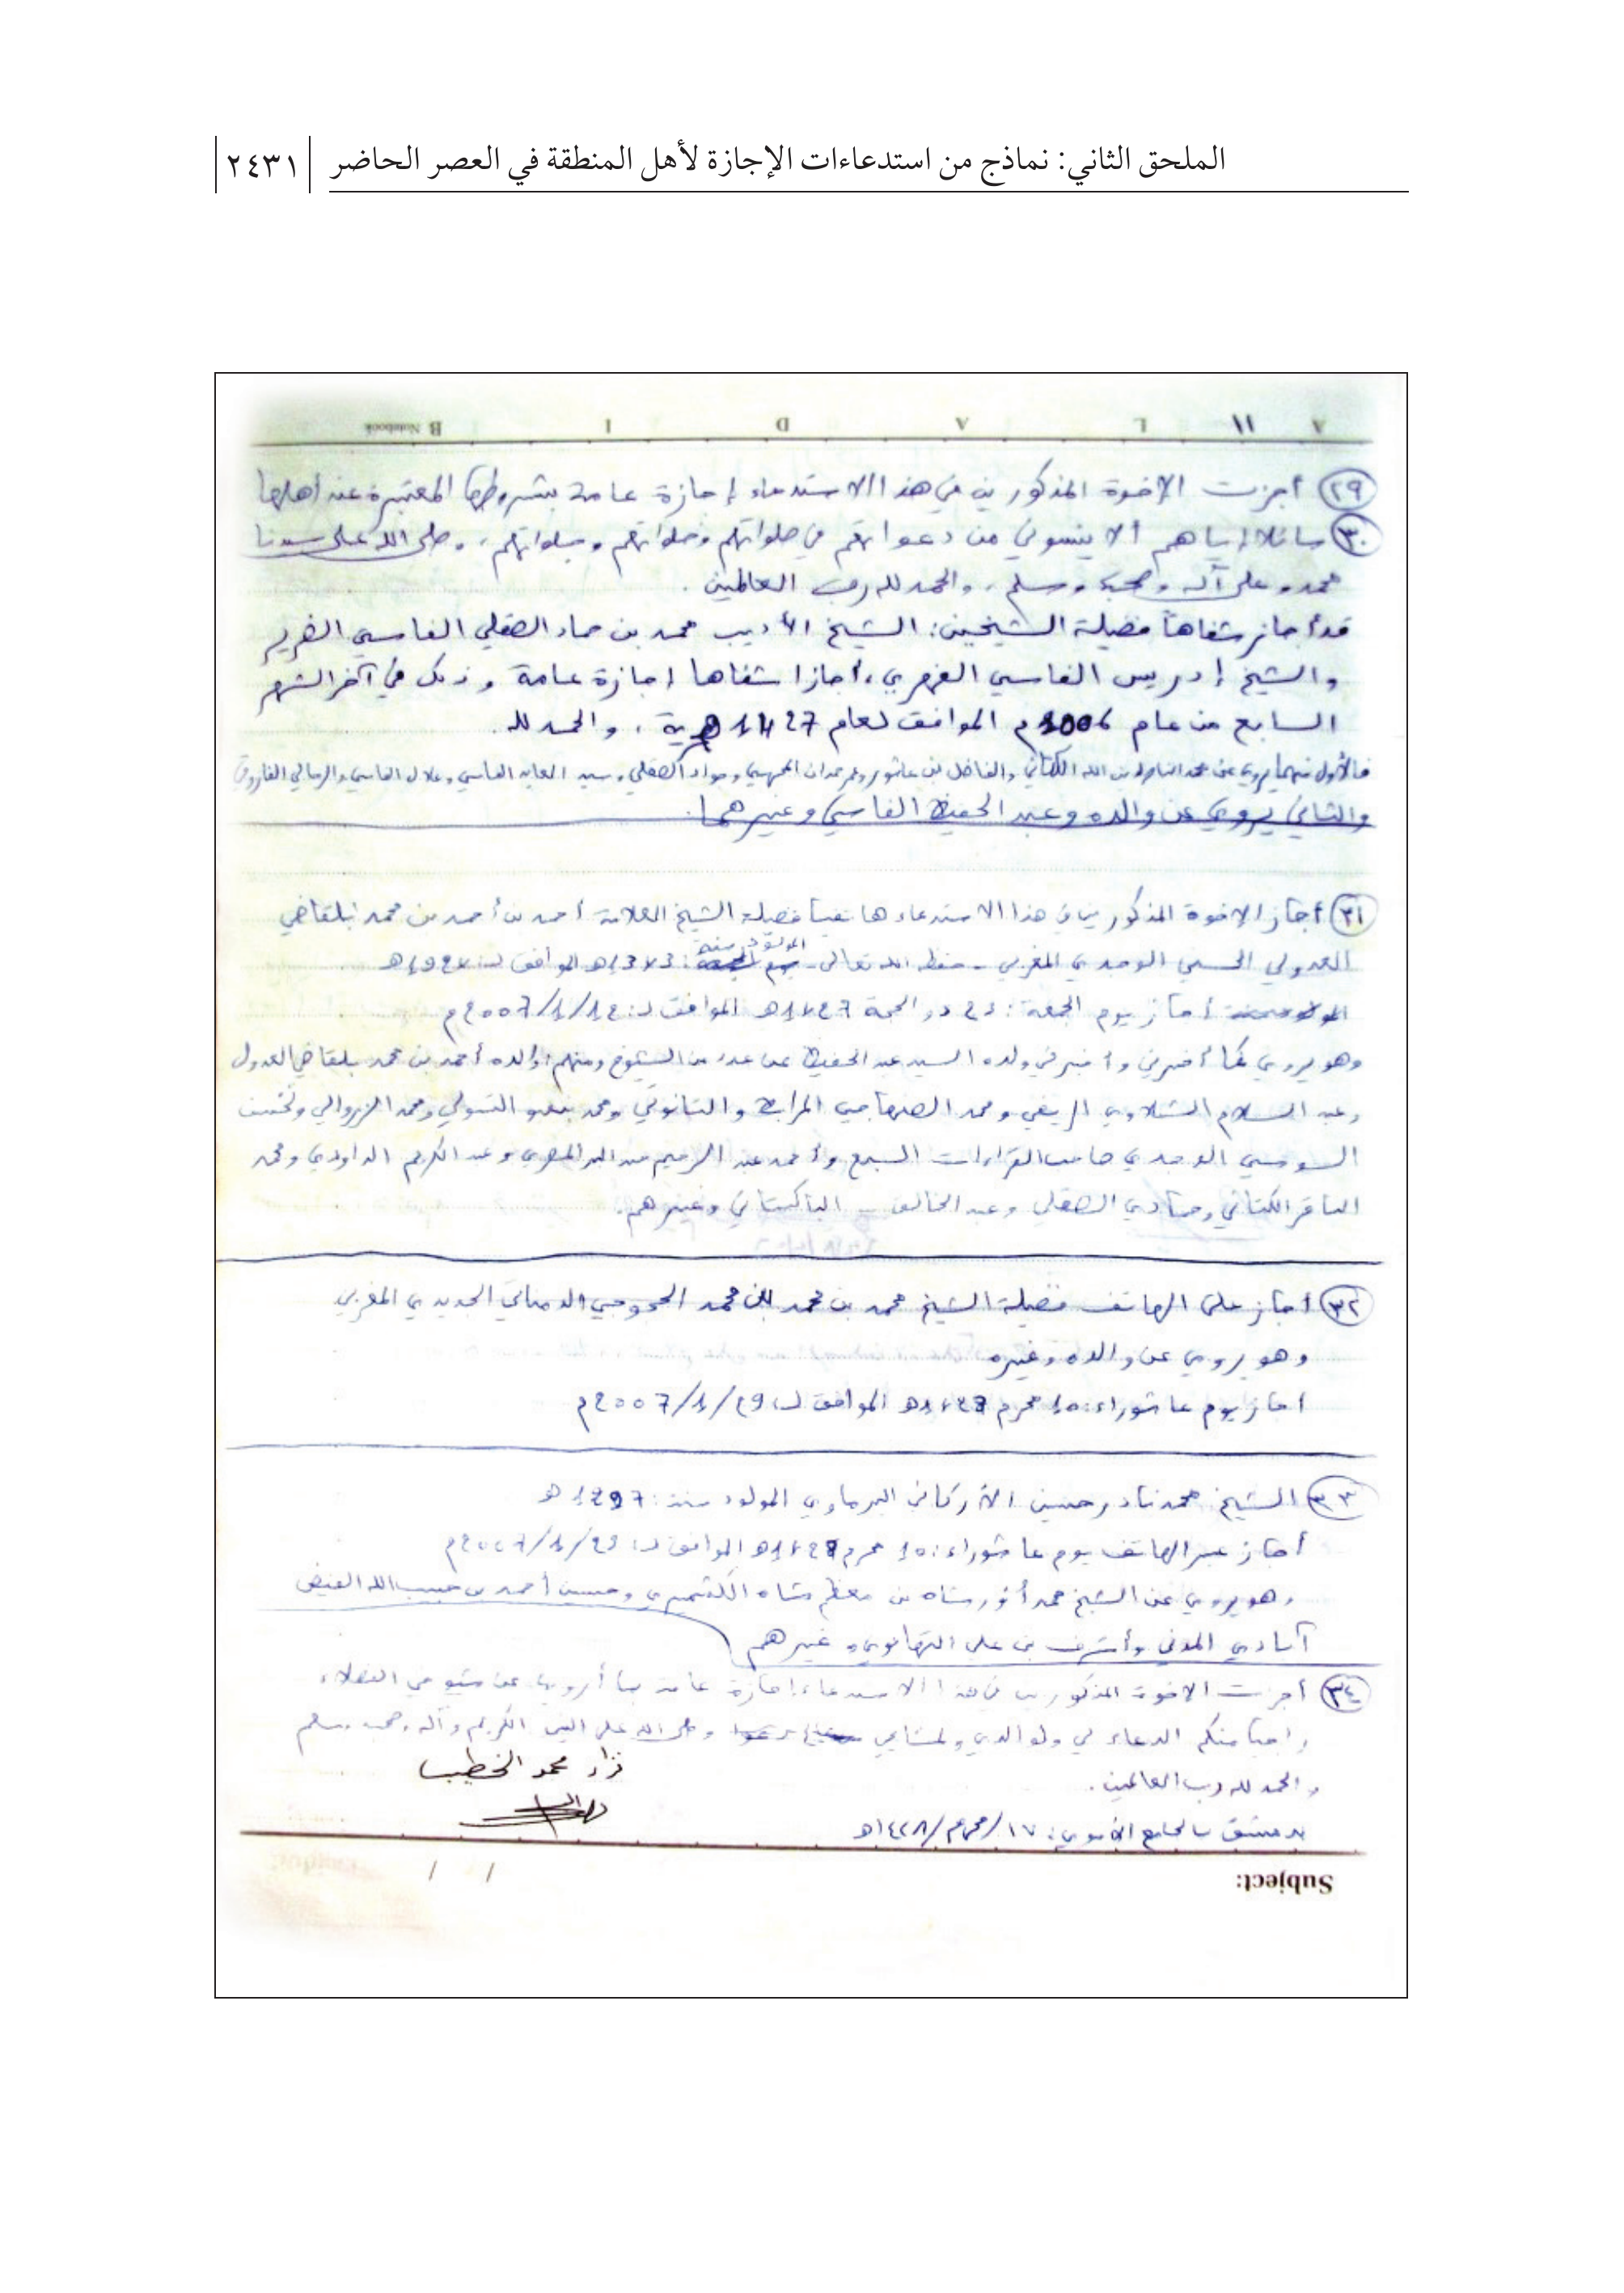 الملحق الثاني: نماذج من استدعاءات الإجازة لأهل المنطقة في العصر الحاضر
٢٤٣١
B Notebook
(٢٩) أجزت الإخوة المذكورين في هذا الاستدعاء إجازة عامة بشروطها المعتبرة عند أهلها
(٣٠) سائلا إياهم ألا ينسوني من دعواتهم في صلواتهم وخلواتهم وجلواتهم، وصلى الله على سيدنا
محمد وعلى آله وصحبه وسلم، والحمد لله رب العالمين.
قد أجاز شفاهاً فضيلة الشيخين: الشيخ الأديب محمد بن حماد الصقلي الفاسي الضرير
والشيخ إدريس الفاسي الفهري، أجازا شفاها إجازة عامة وذلك في آخر الشهر
السابع من عام 2006م الموافق لعام 1427 هـ، والحمد لله.
فالأول منهما يروي عن محمد الناصر الكتاني والفاضل بن عاشور وعمر حمدان المحرسي وجواد الصقلي والعابد الفاسي وعلال الفاسي والرحالي الفاروق
والثاني يروي عن والده وعبد الحفيظ الفاسي وغيرهما.
(٣١) أجاز الإخوة المذكورين في هذا الاستدعاء هاتفيا فضيلة الشيخ العلامة أحمد بن أحمد بن محمد بلقاضي
العدولي الحسني الوجدي المغربي - حفظه الله تعالى - المولود سنة: 1343هـ الموافق لـ:
أجاز يوم الجمعة: 22 ذو الحجة 1427هـ الموافق لـ: 12/1/2007م
وهو يروي كما أخبرني وأخبرني ولده السيد عبد الحفيظ عن عدد من الشيوخ ومنهم: والده أحمد بن محمد بلقاضي العدول
وعبد السلام الريفي ومحمد الصنهاجي المرابط ومحمد التسولي ومحمد الزروالي
السوسي الوجدي صاحب القراءات السبع وأحمد عبد الرحيم عبد البر المصري وعبد الكريم الداودي ومحمد
الباقر الكتاني الصقلي وعبد الخالق الباكستاني وغيرهم.
(٣٢) أجاز على الهاتف فضيلة الشيخ محمد بن محمد بن محمد الحجوجي الدمناتي الجديدي المغربي
وهو يروي عن والده وغيره
أجاز يوم عاشوراء: 10 محرم 1428هـ الموافق لـ: 29/1/2007م
(٣٣) الشيخ محمد نادر حسين الأركاني البرماوي المولود سنة: 1297هـ
أجاز عبر الهاتف يوم عاشوراء: 10 محرم 1428هـ الموافق لـ: 29/1/2007م
وهو يروي عن الشيخ محمد أنور شاه بن معظم شاه الكشميري وحسين أحمد بن حبيب الله الفيض
آبادي المدني وأشرف بن علي التهانوي وغيرهم
(٣٤) أجزت الإخوة المذكورين في هذا الاستدعاء إجازة عامة بما أرويه عن شيوخي الفضلاء
راجيا منكم الدعاء لي ولوالدي ولمشايخي وصلى الله على النبي الكريم وآله وصحبه وسلم
والحمد لله رب العالمين.
نزار محمد الخطيب
بدمشق بالجامع الأموي: ١٧/محرم/١٤٢٨هـ
Subject: